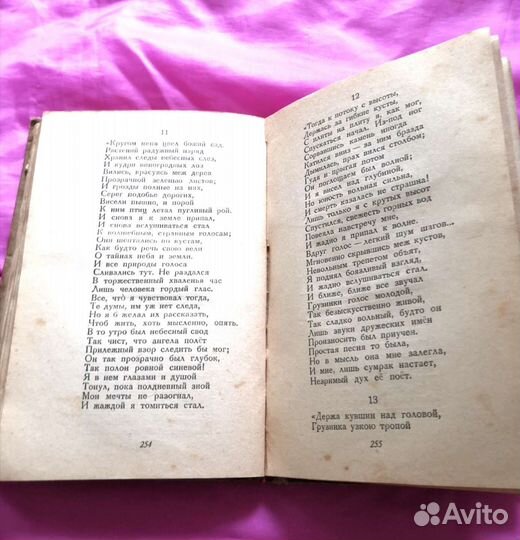 11
«Кругом меня цвел божий сад.
Растений радужный наряд
Хранил следы небесных слез,
И кудри виноградных лоз
Вились, красуясь меж дерев
Прозрачной зеленью листов;
И грозды полные на них,
Серег подобье дорогих,
Висели пышно, и порой
К ним птиц летал пугливый рой.
И снова я к земле припал
И снова вслушиваться стал
К волшебным, странным голосам;
Они шептались по кустам,
Как будто речь свою вели
О тайнах неба и земли.
И все природы голоса
Сливались тут. Не раздался
В торжественный хваленья час
Лишь человека гордый глас.
Все, что я чувствовал тогда,
Те думы, им уж нет следа,
Но я б желал их рассказать,
Чтоб жить, хоть мысленно, опять.
В то утро был небесный свод
Так чист, что ангела полёт
Прилежный взор следить бы мог;
Он так прозрачно был глубок,
Так полон ровной синевой!
Я в нем глазами и душой
Тонул, пока полдневный зной
Мои мечты не разогнал,
И жаждой я томиться стал.
254
12
«Тогда к потоку с высоты,
Держась за гибкие кусты,
С плиты на плиту я, как мог,
Спускаться начал. Из-под ног
Сорвавшись, камень иногда
Катился вниз — за ним бразда
Дымилась, прах вился столбом;
Гудя и прыгая, потом
Он поглощаем был волной;
И я висел над глубиной,
Но юность вольная сильна,
И смерть казалась не страшна!
Лишь только я с крутых высот
Спустился, свежесть горных вод
Повеяла навстречу мне,
И жадно я припал к волне.
Вдруг голос — легкий шум шагов...
Мгновенно скрывшись меж кустов,
Невольным трепетом объят,
Я поднял боязливый взгляд,
И жадно вслушиваться стал.
И ближе, ближе все звучал
Грузинки голос молодой,
Так безыскусственно живой,
Так сладко вольный, будто он
Лишь звуки дружеских имён
Произносить был приучен.
Простая песня то была,
Но в мысль она мне залегла,
И мне, лишь сумрак настает,
Незримый дух её поёт.
13
«Держа кувшин над головой,
Грузинка узкою тропой
255
Avito